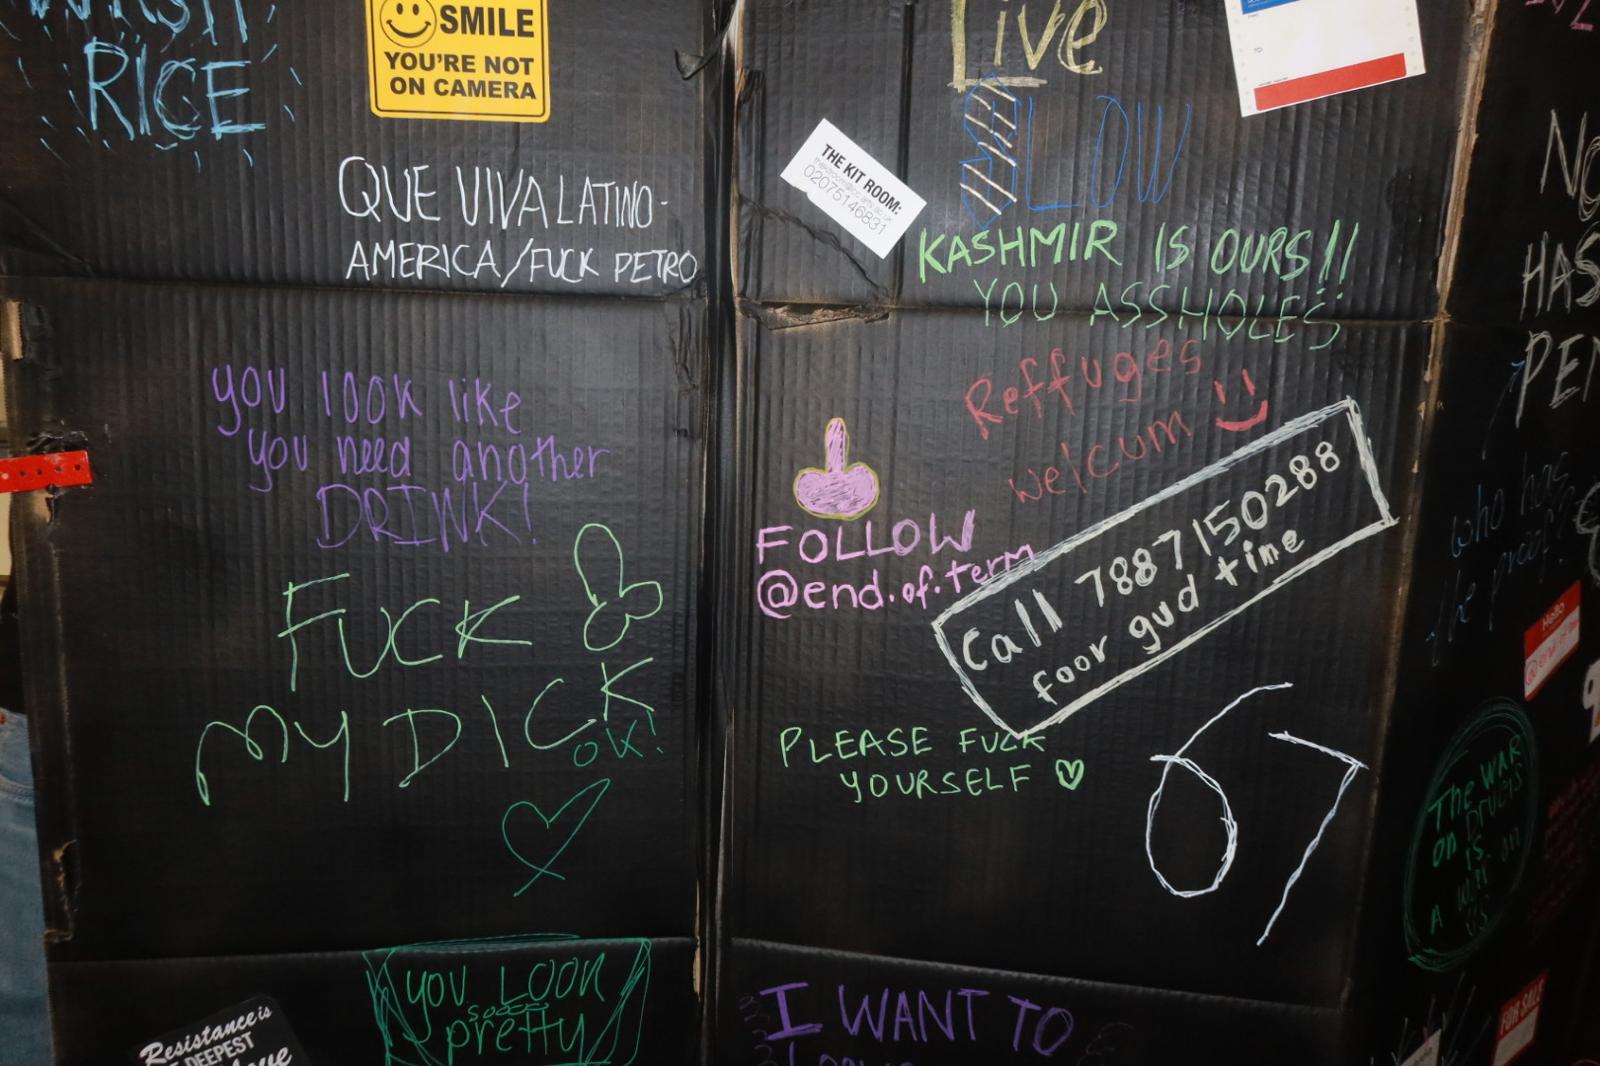 RICE
SMILE
YOU'RE NOT
ON CAMERA
QUE VIVA LATINO-
AMERICA/FUCK PETRO
you look like
you need another
DRINK!
FUCK
MY DICK
OK!
YOU LOOK
sooooo
pretty
Resistance is
DEEPEST
Live
LOW
TO:
THE KIT ROOM:
02075146831
KASHMIR IS OURS!!
YOU ASSHOLES
Reffuges
welcum
FOLLOW
@end.of.term
Call 7887150288
foor gud time
PLEASE FUCK
YOURSELF
67
I WANT TO
HAS
who has
the proof?
Hello
The WAR
on DRUGS
is
A WAR on
US
FOR SALE